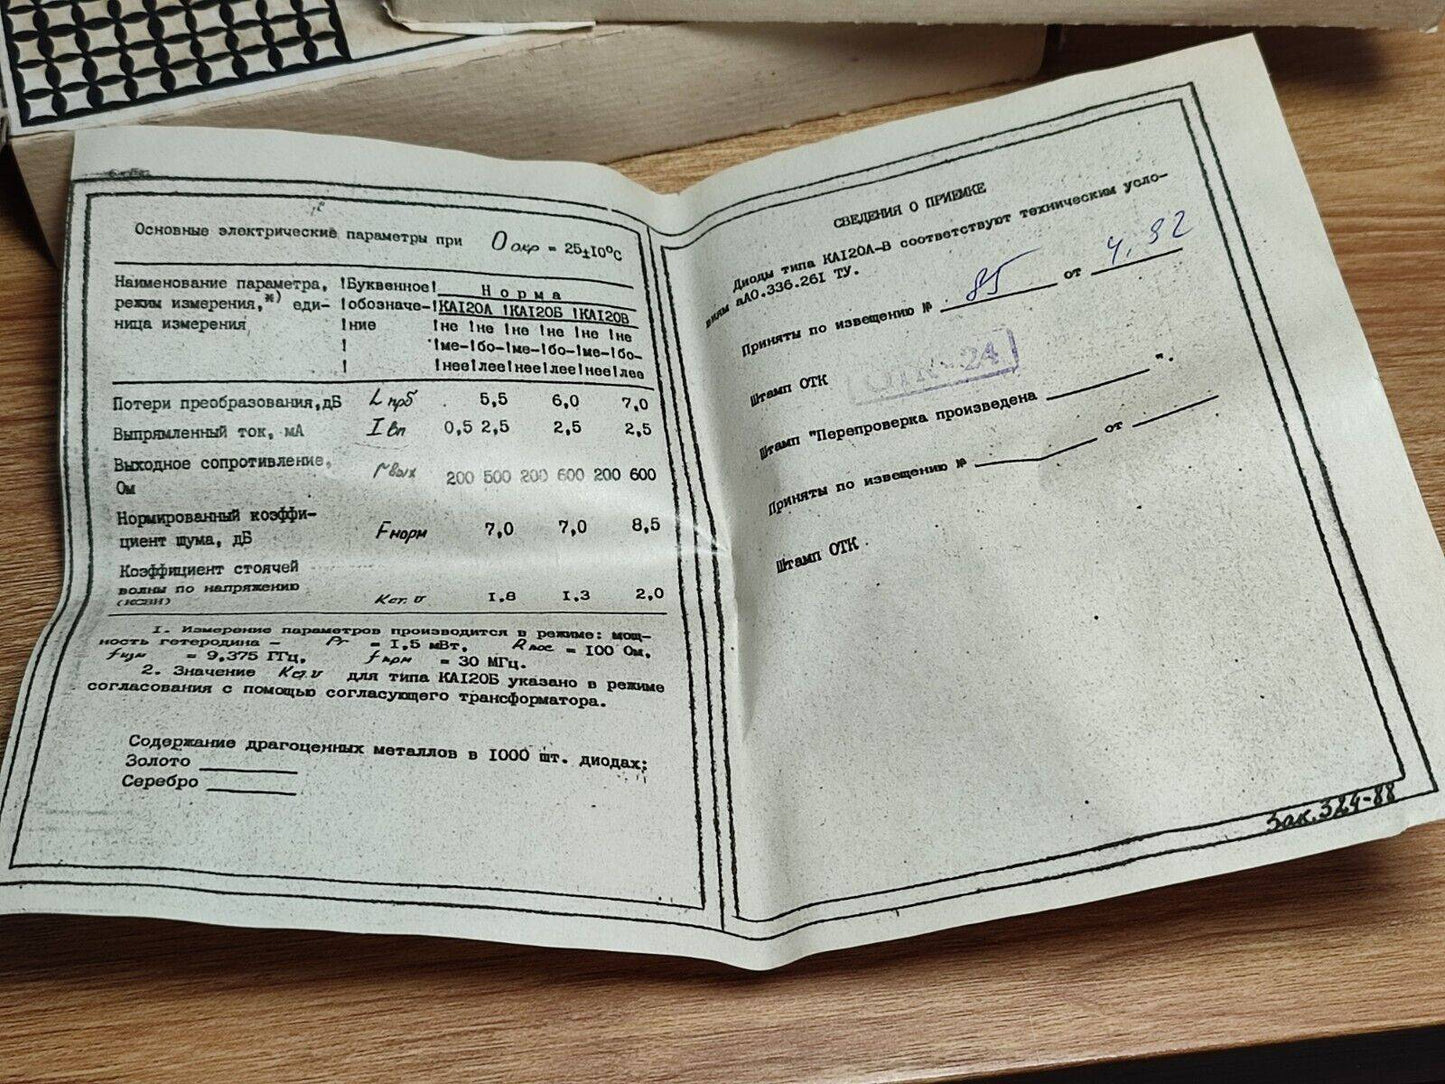 Основные электрические параметры при Θ окр = 25±10°С
Наименование параметра, !Буквенное! Норма
режим измерения,ж) еди- !обозначе-!КАI20А !КАI20Б !КАI20В
ница измерения !ние !не !не !не !не !не !не
! !ме-!бо-!ме-!бо-!ме-!бо-
! !нее!лее!нее!лее!нее!лее
Потери преобразования,дБ L прб 5,5 6,0 7,0
Выпрямленный ток, мА I вп 0,5 2,5 2,5 2,5
Выходное сопротивление, r вых 200 500 200 600 200 600
Ом
Нормированный коэффи-
циент шума, дБ Fнорм 7,0 7,0 8,5
Коэффициент стоячей
волны по напряжению
(КСВН) Кст. U I.8 I.3 2,0
I. Измерение параметров производится в режиме: мощ-
ность гетеродина – Рг = I,5 мВт, R пос = I00 Ом,
f изм = 9,375 ГГц, f прм = 30 МГц.
2. Значение Кст. U для типа КАI20Б указано в режиме
согласования с помощью согласующего трансформатора.
Содержание драгоценных металлов в I000 шт. диодах:
Золото
Серебро
СВЕДЕНИЯ О ПРИЕМКЕ
Диоды типа КАI20А-В соответствуют техническим усло-
виям аАО.336.26I ТУ.
Приняты по извещению № 85 от 4.92
Штамп ОТК ОТК-24
Штамп "Перепроверка произведена ".
Приняты по извещению № от
Штамп ОТК
Зак.324-88